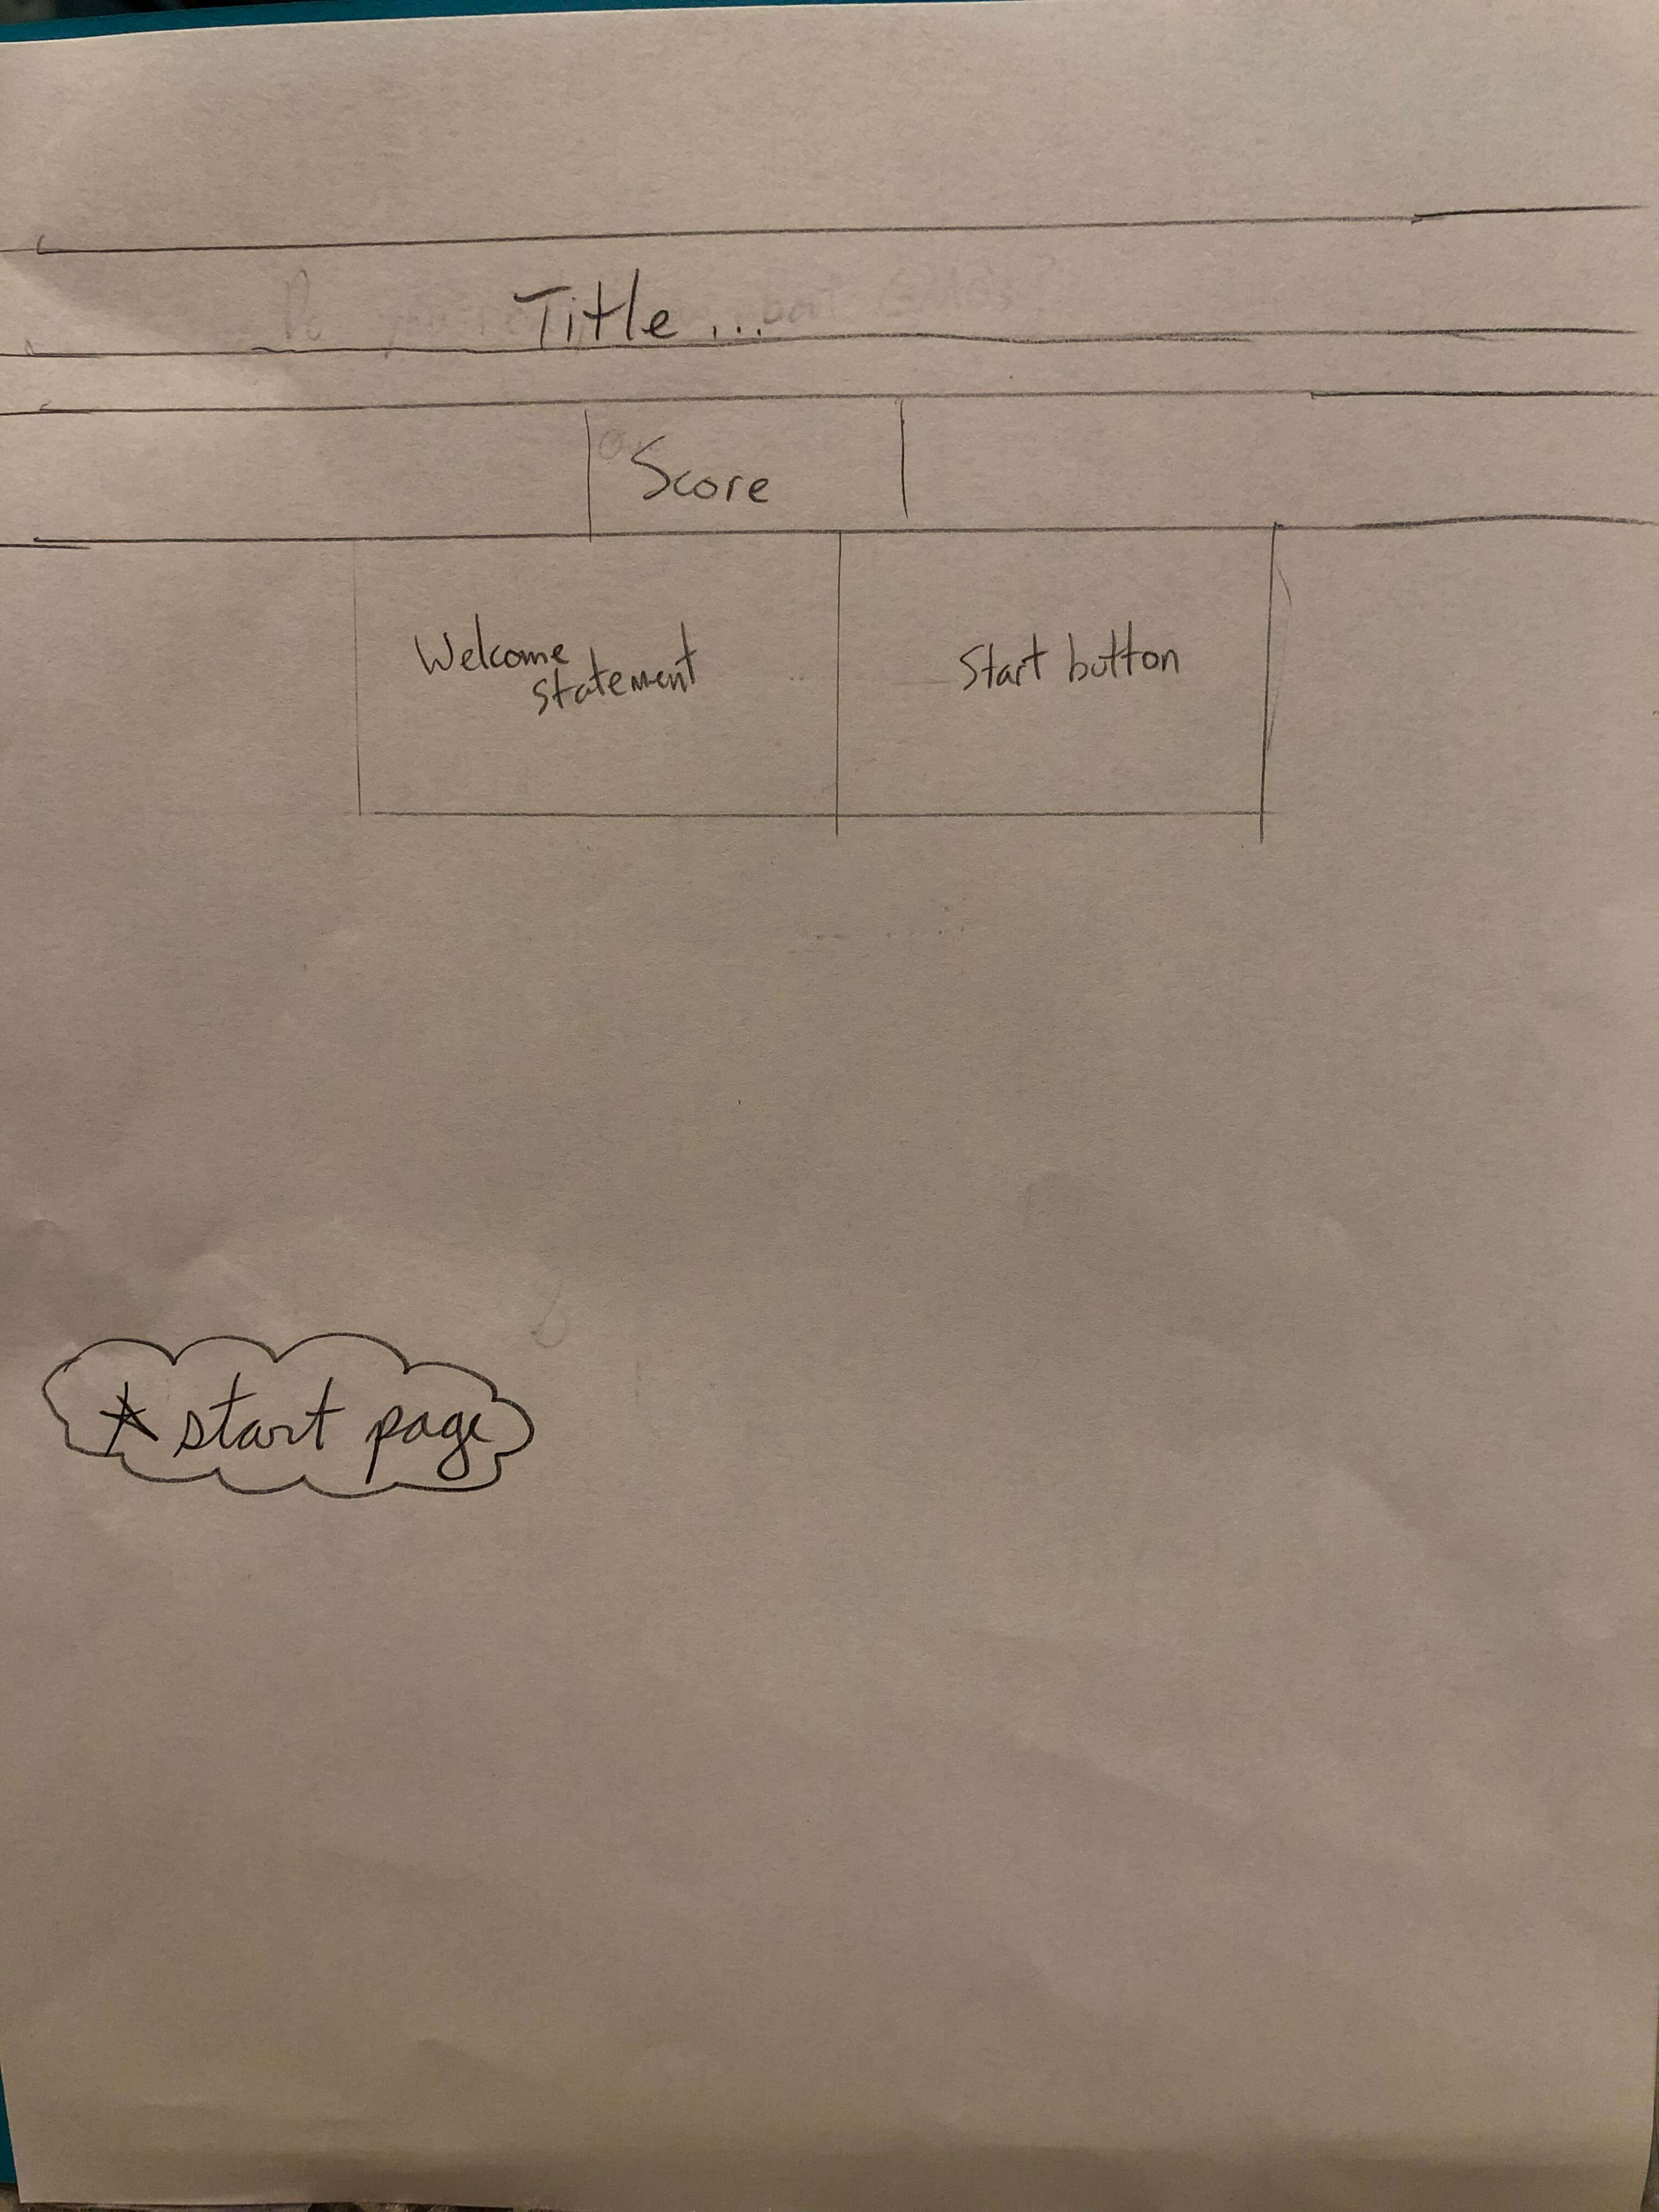 Title...
Score
Welcome
statement
Start button
start page